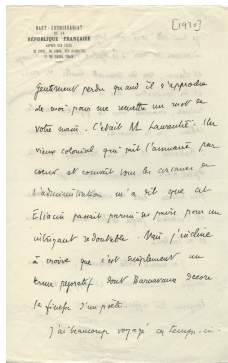 HAUT-COMMISSARIAT
DE LA
RÉPUBLIQUE FRANÇAISE
[1930]
gentiment perdu quand il s'approcha
de moi pour me remettre un mot en
votre nom. C'était M. Laurentié. Un
vieux colonial qui sait l'annuaire par
cœur et connaît tous les arcanes de
l'administration m'a dit que cet
Eliacin passait parmi ses pairs pour un
intrigant redoutable. Mais j'incline
à croire que c'est simplement un
terme péjoratif dont Barnavaux décore
la finesse d'un poète.
J'ai beaucoup voyagé ces temps-ci.